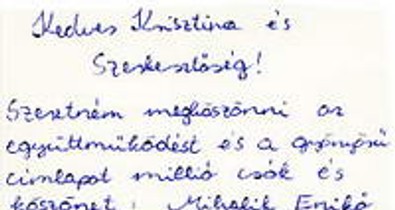 Kedves Krisztina és
Szerkesztőség!
Szeretném megköszönni az
együttműködést és a gyönyörű
címlapot millió csók és
köszönet! Mihalik Enikő